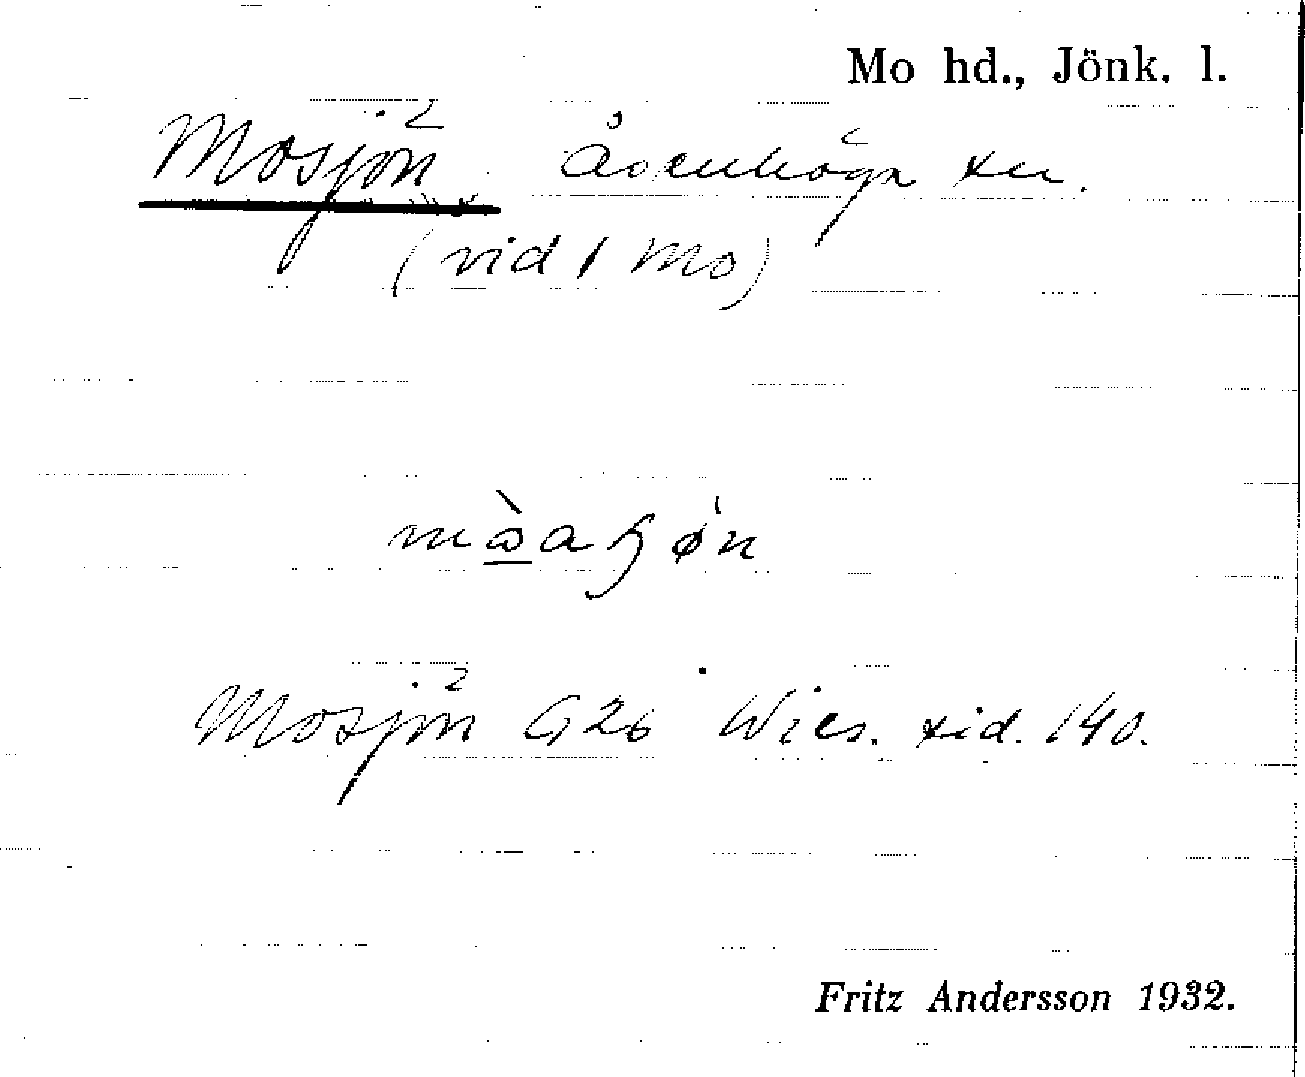 Mo hd., Jönk. l.
Mosjön Åsenhöga sn.
(vid 1 Mo)
Mosjön G26 Wies. sid. 140.
Fritz Andersson 1932.